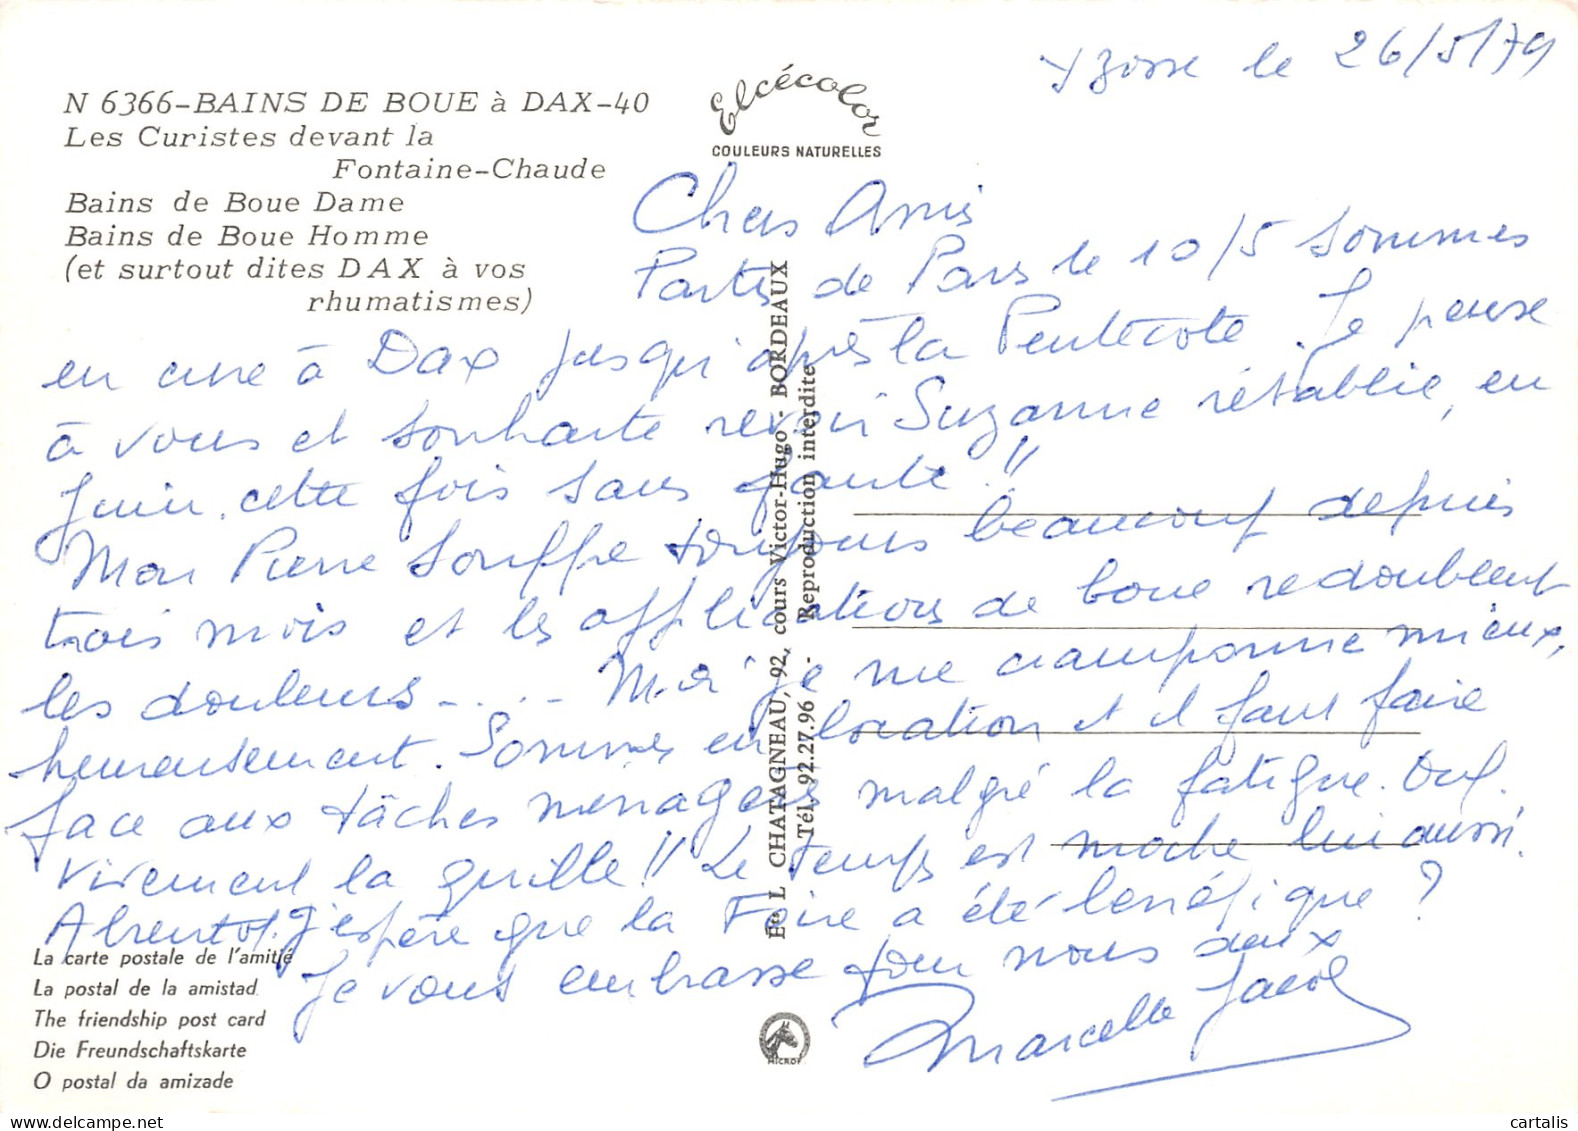 Yzosse le 26/5/79
N 6366-BAINS DE BOUE à DAX-40
Les Curistes devant la
Fontaine-Chaude
Bains de Boue Dame
Bains de Boue Homme
(et surtout dites DAX à vos
rhumatismes)
Elcécolor
COULEURS NATURELLES
Chers Amis
Partis de Paris le 10/5 sommes
en cure à Dax jusqu'après la Pentecôte. Je pense
à vous et souhaite revoir Suzanne rétablie, en
Juin, cette fois sans faute!!
Mon Pierre souffre toujours beaucoup depuis
trois mois et les applications de boue redoublent
les douleurs - . . . - Moi je me cramponne mieux,
heureusement. Sommes en location et il faut faire
face aux tâches ménagères malgré la fatigue. Ouf.
Vivement la quille!! Le temps est moche lui aussi.
A bientôt. J'espère que la Foire a été bénéfique?
Je vous embrasse pour nous deux
Marcelle Jacob
Ets L CHATAGNEAU, 92, cours Victor-Hugo - BORDEAUX
Tél. 92.27.96 - Reproduction interdite
La carte postale de l'amitié
La postal de la amistad
The friendship post card
Die Freundschaftskarte
O postal da amizade
MICROF
cartalis